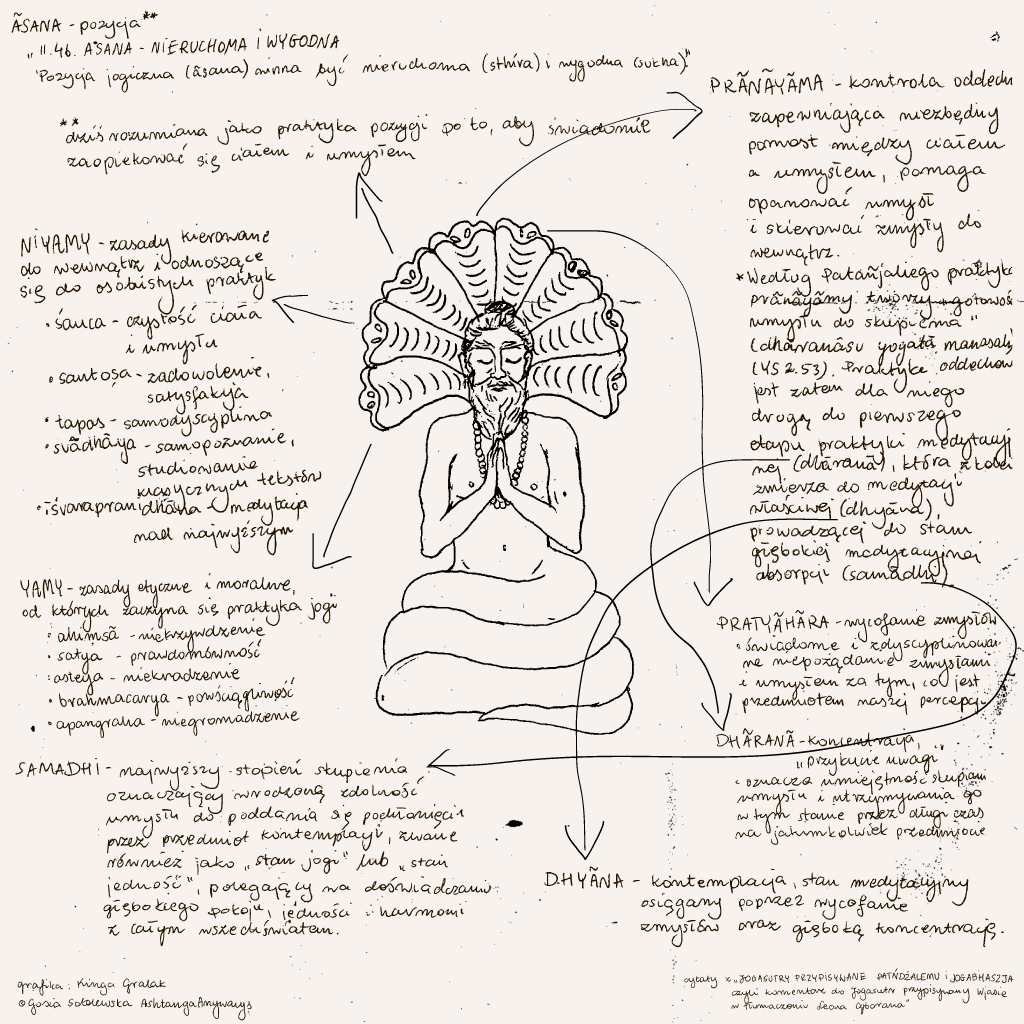 ÃSANA - pozycja**
„II.46. ASANA - NIERUCHOMA I WYGODNA
'Pozycja jogiczna (âsana) winna być nieruchoma (sthira) i wygodna (sukha)"
**dziś rozumiana jako praktyka pozycji po to, aby świadomie
zaopiekować się ciałem i umysłem
NIYAMY - zasady kierowane
do wewnątrz i odnoszące
się do osobistych praktyk
• śauca - czystość ciała
i umysłu
• santoṣa - zadowolenie,
satysfakcja
• tapas - samodyscyplina
• svãdhãya - samopoznanie,
studiowanie
klasycznych tekstów
• iśvarapranidhãna - medytacja
nad najwyższym
YAMY - zasady etyczne i moralne,
od których zaczyna się praktyka jogi
• ahimsã - niekrzywdzenie
• satya - prawdomówność
• asteya - niekradzenie
• brahmacarya - powściągliwość
• apangraha - niegromadzenie
SAMADHI - najwyższy stopień skupienia
oznaczający wrodzoną zdolność
umysłu do poddania się pochłonięciu
przez przedmiot kontemplacji, zwane
również jako „stan jogi" lub „stan
jedność", polegający na doświadczaniu
głębokiego spokoju, jedności i harmonii
z całym wszechświatem.
PRÃNÃYÃMA - kontrola oddechu
zapewniająca niezbędny
pomost między ciałem
a umysłem, pomaga
opanować umysł
i skierować zmysły do
wewnątrz.
*Według Patańjaliego praktyka
prãnãyãmy tworzy „gotowość
umysłu do skupienia"
(dhãranãsu yogatã manasah)
(YS 2.53). Praktyka oddechowa
jest zatem dla niego
drogą do pierwszego
etapu praktyki medytacyj
nej (dhãranã), która z kolei
zmierza do medytacji
właściwej (dhyãna),
prowadzącej do stanu
głębokiej medytacyjnej
absorpcji (samãdhi)
PRATYÃHÃRA - wycofanie zmysłów
• świadome i zdyscyplinowa-
ne niepożądanie zmysłami
i umysłem za tym, co jest
przedmiotem naszej percepcji.
DHÃRANÃ - koncentracja,
„przykucie uwagi
• oznacza umiejętność skupiania
umysłu i utrzymywania go
w tym stanie przez długi czas
na jakimkolwiek przedmiocie
DHYÃNA - kontemplacja, stan medytacyjny
osiągany poprzez wycofanie
zmysłów oraz głęboką koncentrację.
grafika: Kinga Gralak
©Gosia Sobolewska AshtangaAnyways
cytaty z „JOGASUTRY PRZYPISYWANE PATAŃDŹALEMU i JOGABHASZJA
czyli komentarz do Jogasutr przypisywany Wjasie
w tłumaczeniu Leona Cyborana"